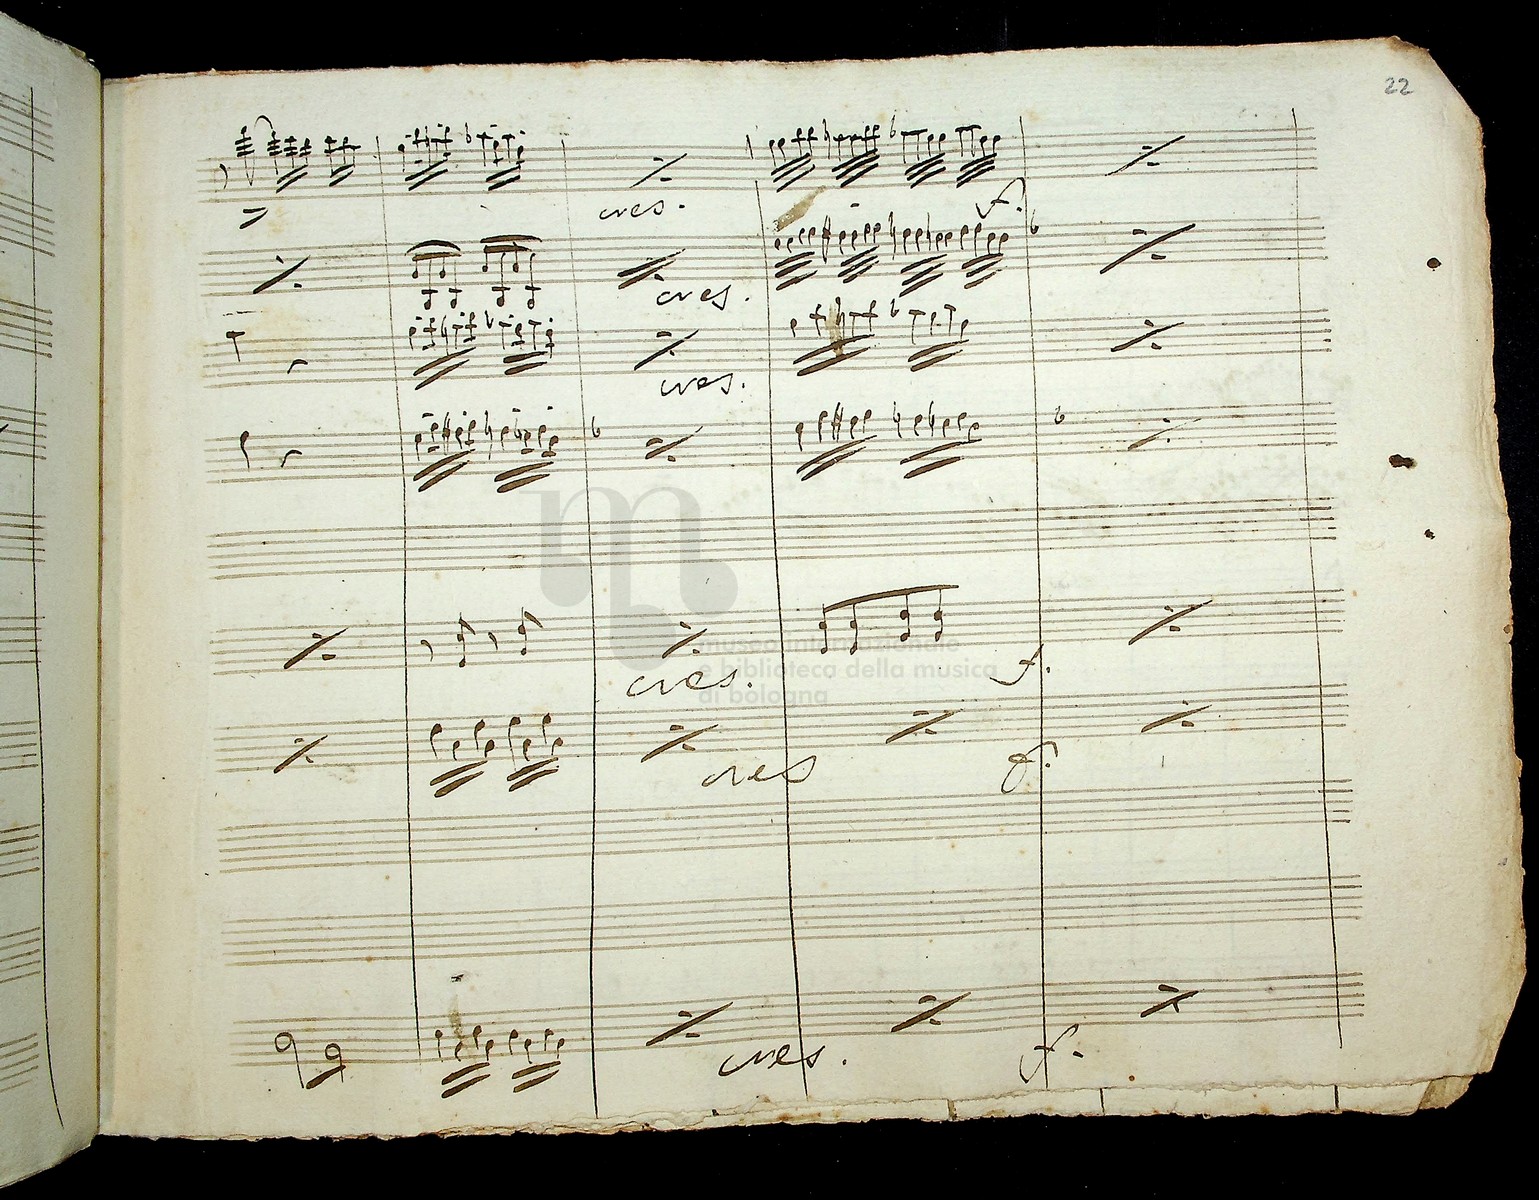 22
cres.
f.
cres.
cres.
museo internazionale
e biblioteca della musica
di bologna
cres.
f.
cres
f.
cres.
f.